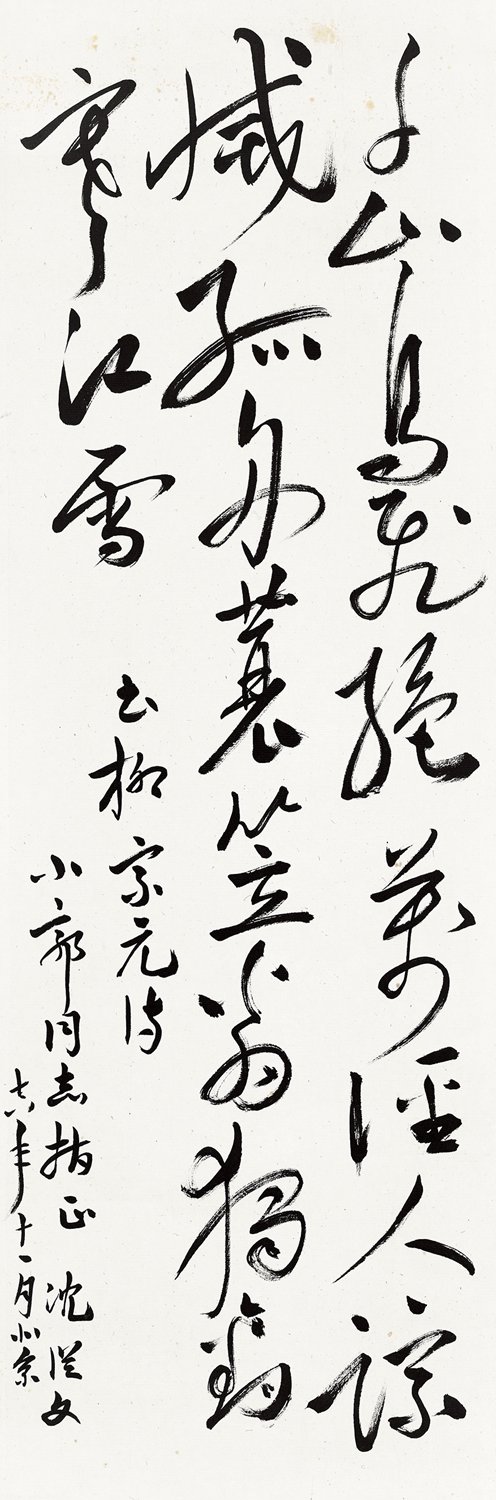 千山鳥飛絕萬徑人蹤
滅孤舟蓑笠翁獨釣
寒江雪
书柳宗元诗
小郭同志指正 沈從文
七六年十一月北京